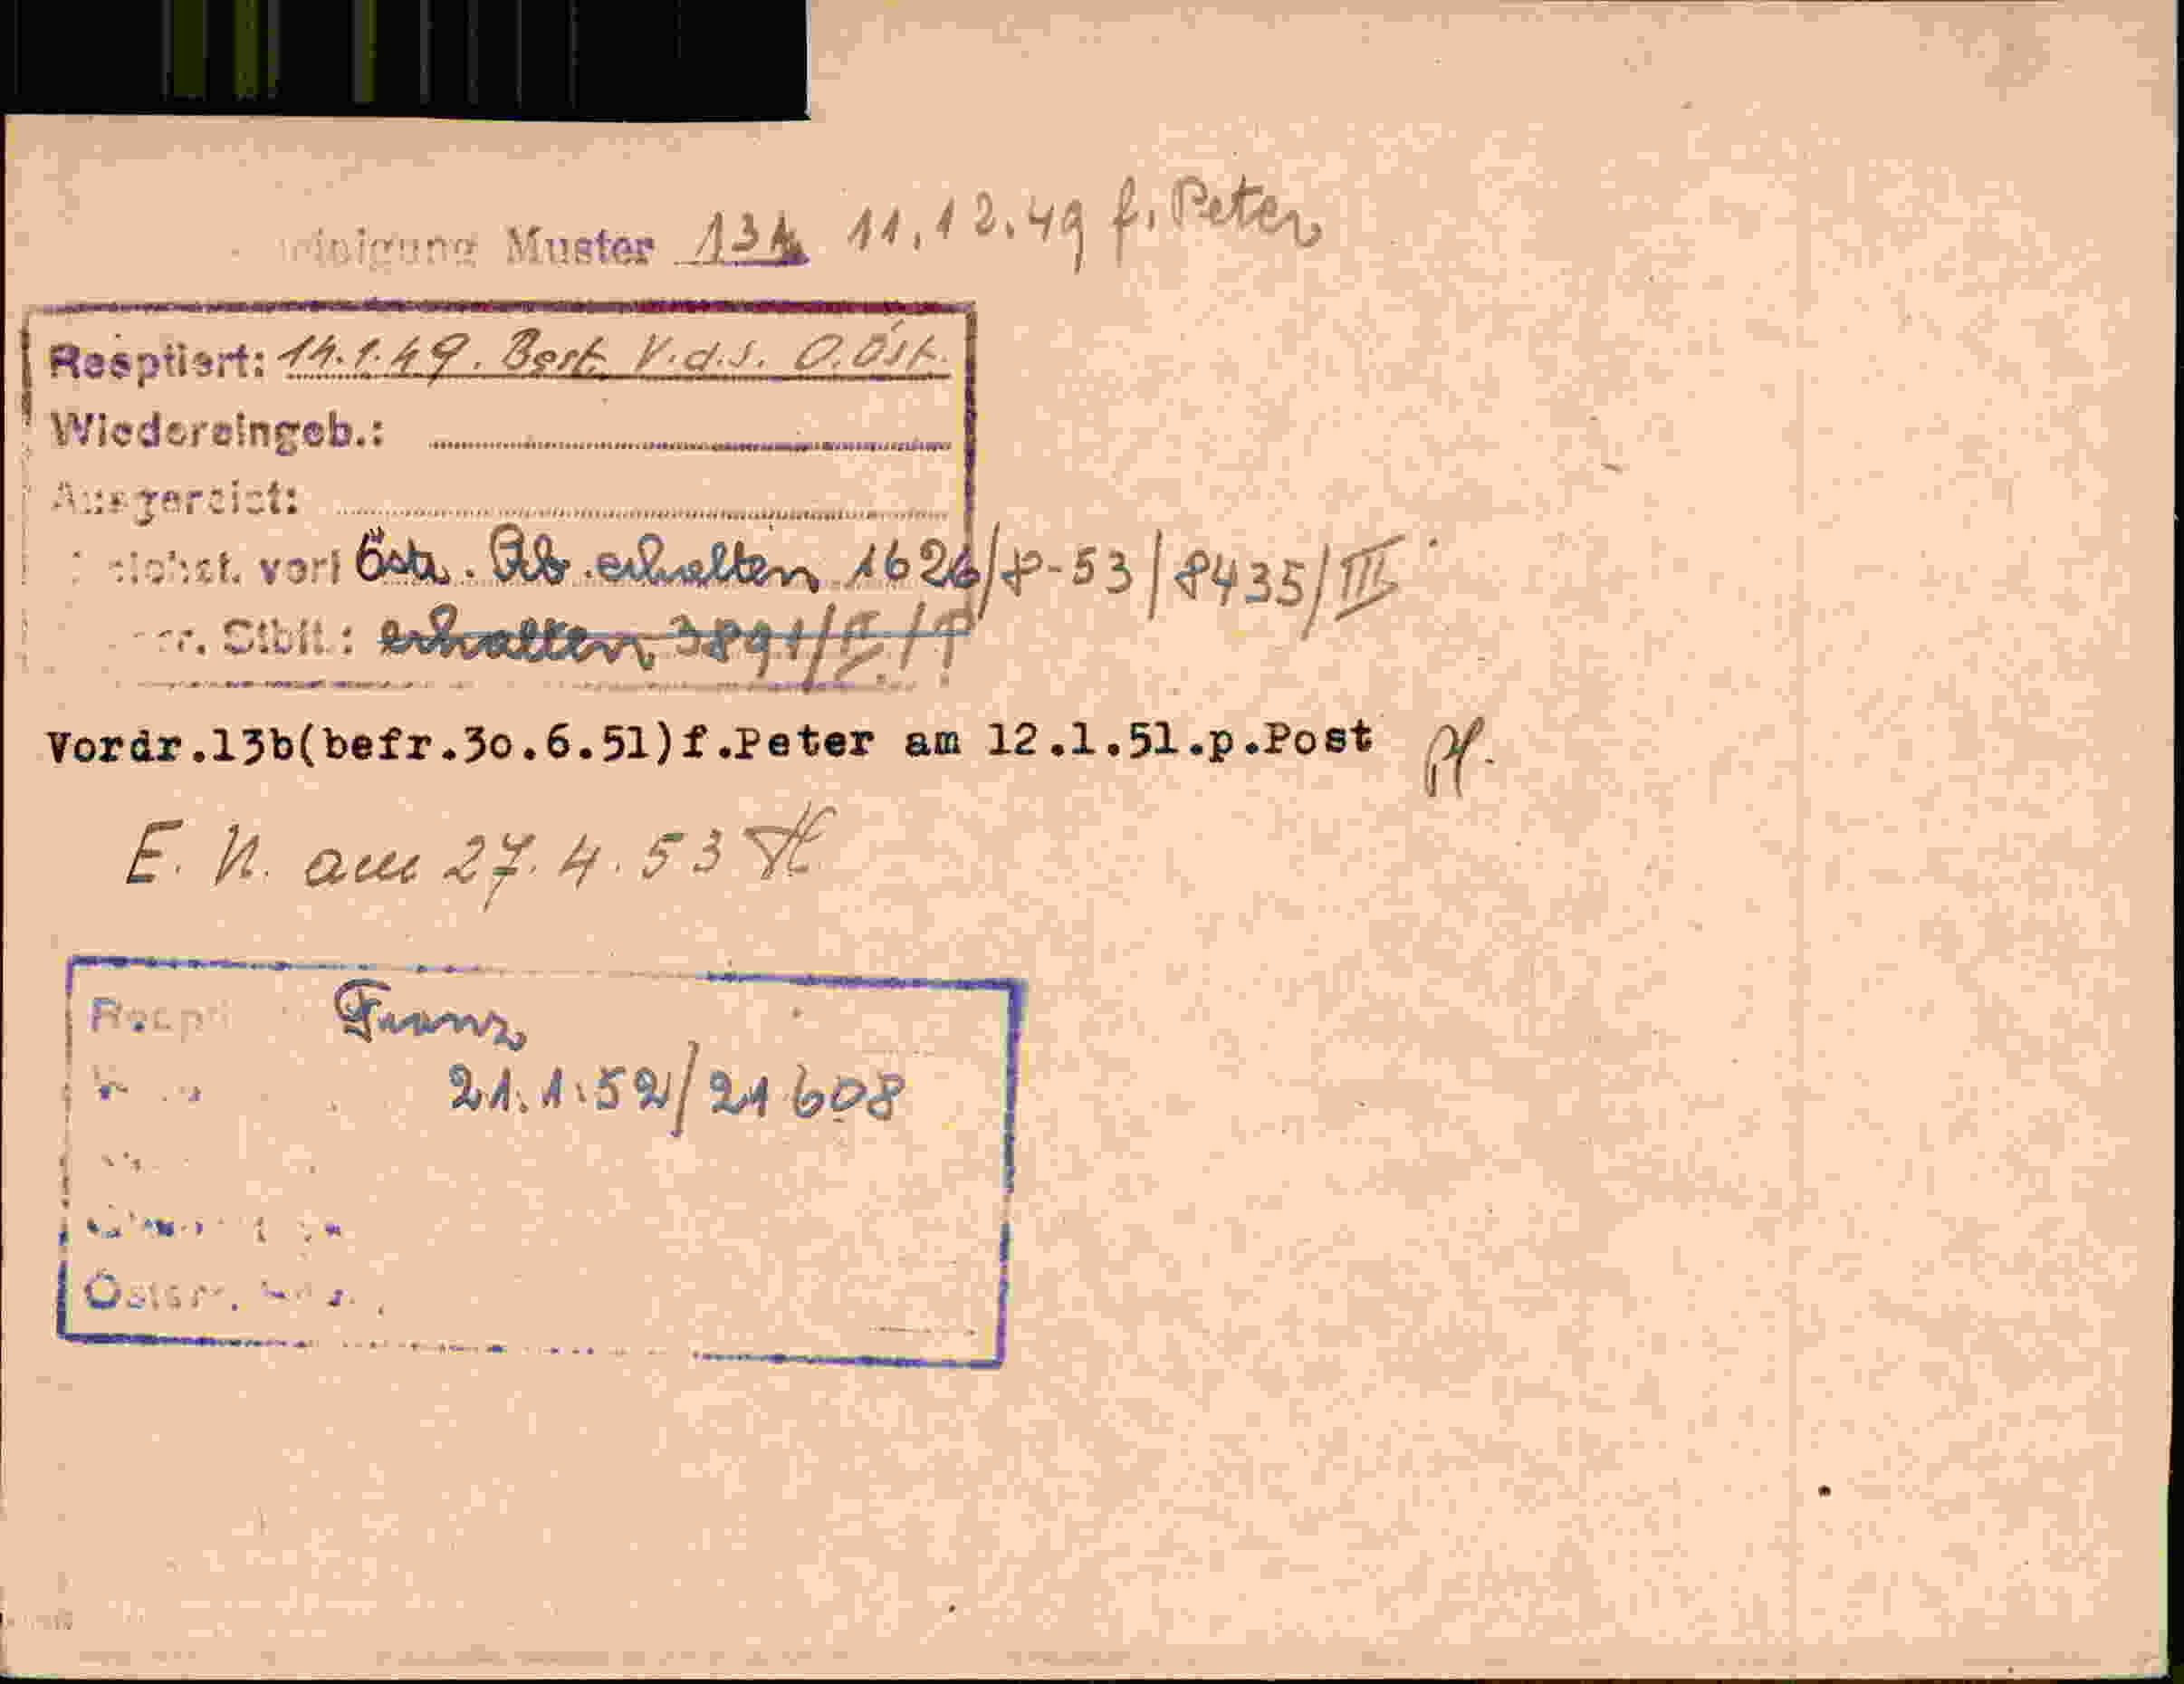 Muster 13b 11.12.49 f. Peter
Resptiert: 14.1.49. Best. V.d.S. O.Öst.
Wiedereingeb.:
Ausgereist:
Öst. erhalten 1626/P-53/8435/III
Stblt.: erhalten 3891/II/P
Vordr.13b(befr.30.6.51)f.Peter am 12.1.51.p.Post
E. N. am 27.4.53
Franz
21.1.52/21608